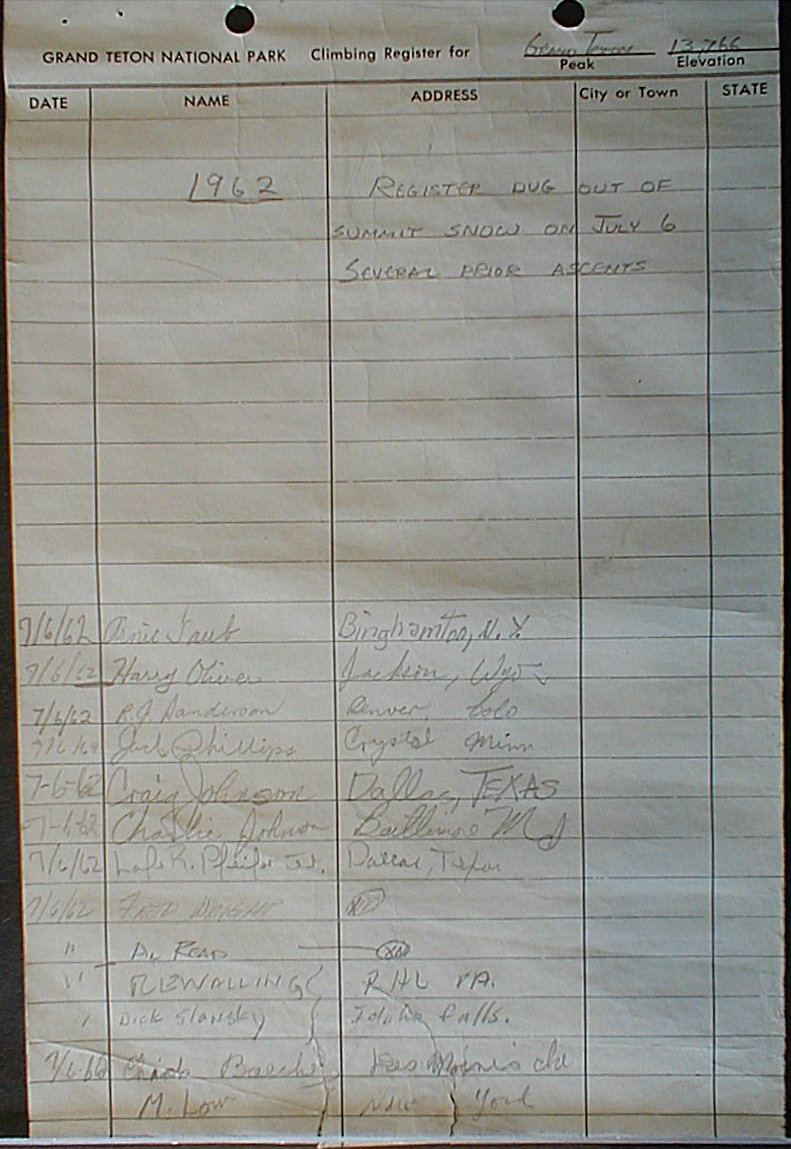 GRAND TETON NATIONAL PARK Climbing Register for Grand Teton 13,766
Peak Elevation
DATE NAME ADDRESS City or Town STATE
1962 REGISTER DUG OUT OF
SUMMIT SNOW ON JULY 6
SEVERAL PRIOR ASCENTS
7/6/62 Binghamton, N.Y.
7/6/62 Harry Oliver Jackson, Wyo
7/6/62 R.J. Sanderson Denver, Colo
Jack Phillips Crystal Minn
7-6-62 Craig Johnson Dallas, TEXAS
7-6-62 Charlie Johnson Baltimore Md
7/6/62 Dallas, Texas
7/6/62 FRED WRIGHT
" AL READ
"
" Dick Idaho Falls.
7/6-62 Des Moines
M. Low New York